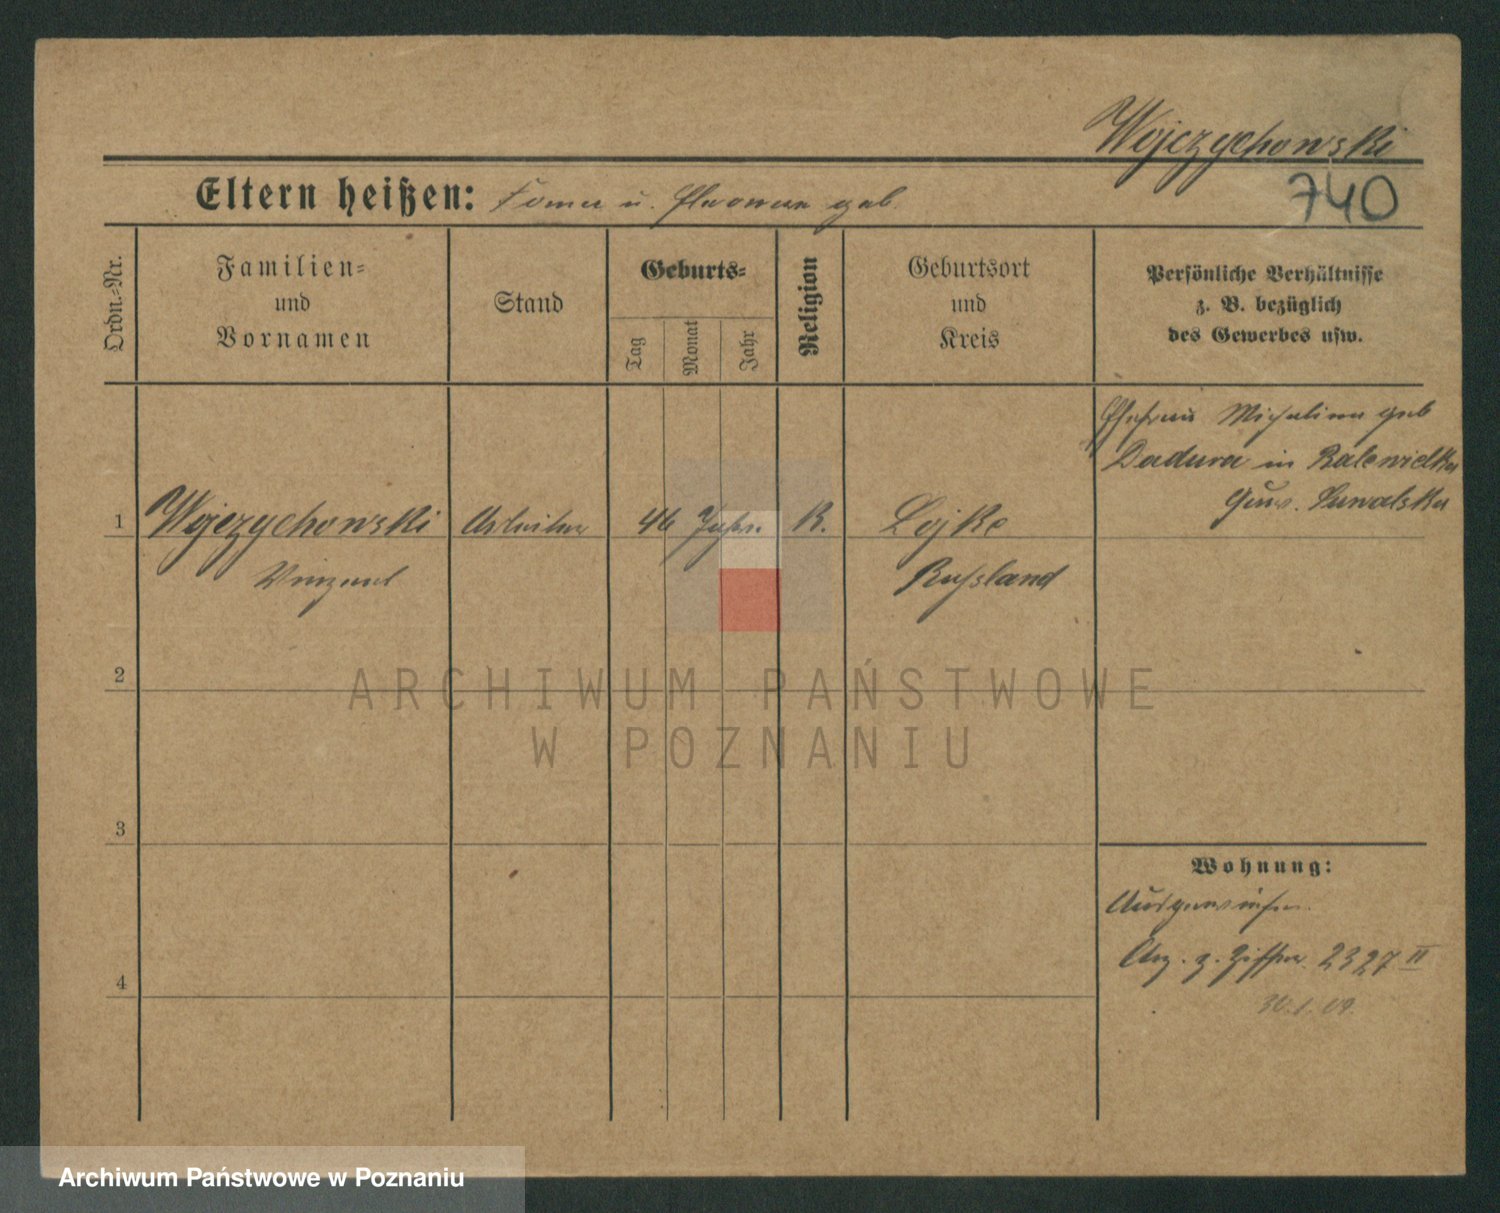 Wojczychowski
740
Eltern heißen: Toma u. geb.
Ordn.=Nr.
Familien=
und
Vornamen
Stand
Geburts=
Tag
Monat
Jahr
Religion
Geburtsort
und
Kreis
Persönliche Verhältnisse
z. B. bezüglich
des Gewerbes usw.
Ehefrau Michalina geb
Dadura in Balewielka
Guv. Suwalska
1 Wojczychowski Arbeiter 46 Jahr. K. Lojke
Vinzent Russland
2
3
4
Wohnung:
Ausgewiesen.
Anz. z. Ziffer 2327 II
30.1.09.
ARCHIWUM PAŃSTWOWE
W POZNANIU
Archiwum Państwowe w Poznaniu